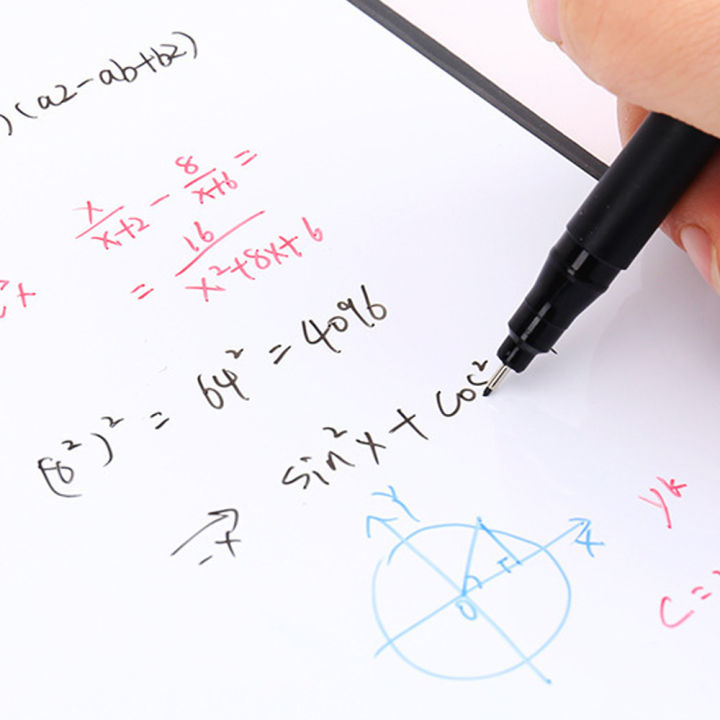 )(a2-ab+b2)
x/x+2 - 8/x+6 =
= 16/x²+8x+6
(8²)² = 64² = 4096
sin²x + cos²
-x
y
x
0
yk
c=